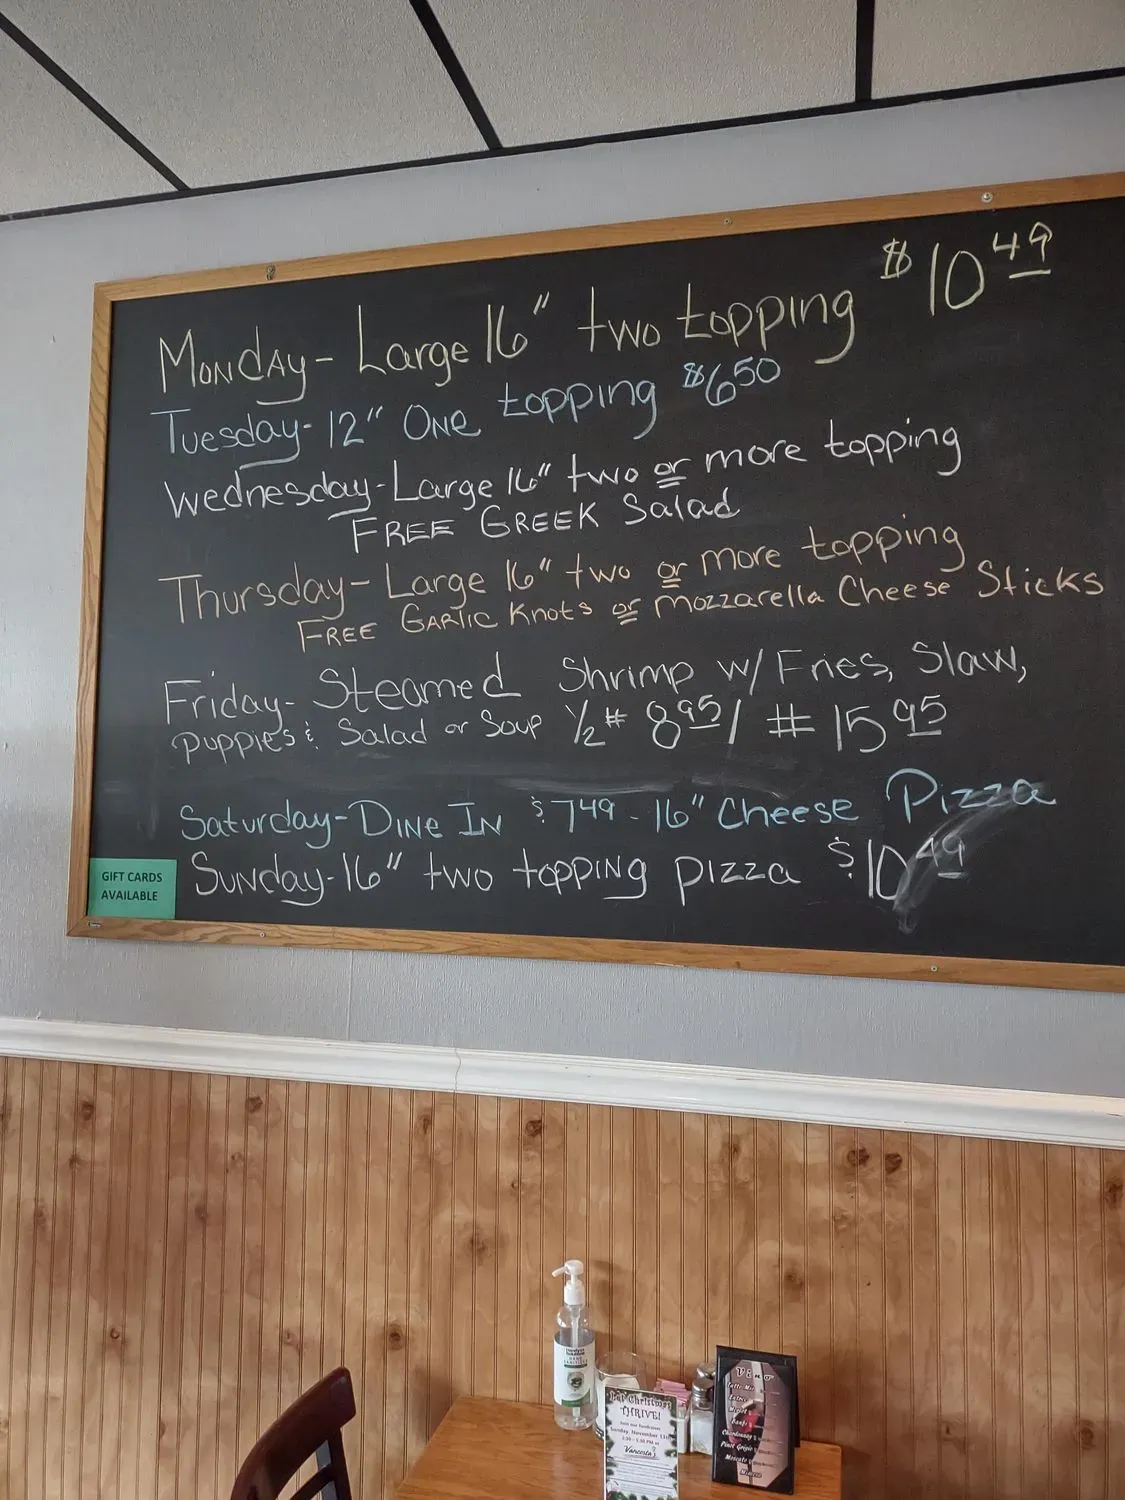 Monday- Large 16" two topping $10 49
Tuesday- 12" One topping $6 50
Wednesday- Large 16" two or more topping
FREE GREEK Salad
Thursday- Large 16" two or more topping
FREE GARLIC Knots or Mozzarella Cheese Sticks
Friday- Steamed Shrimp w/ Fries, Slaw,
puppie's & Salad or Soup ½ # 8 95 / # 15 95
Saturday- DINE IN $7 49 - 16" Cheese Pizza
Sunday- 16" two topping pizza $10 49
GIFT CARDS
AVAILABLE
HAND
Christmas
THRIVE!
Join our fundraiser
Sunday, November
Vino
Merlot
Chardonnay
Pinot Grigio
Moscato